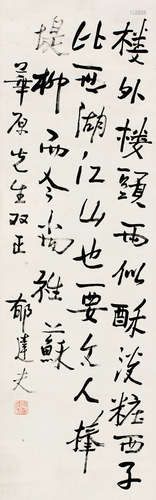 楼外楼頭雨似酥淡粧西子
比西湖江山也要文人捧
堤柳而今尚姓蘇
華原先生双正
郁達夫